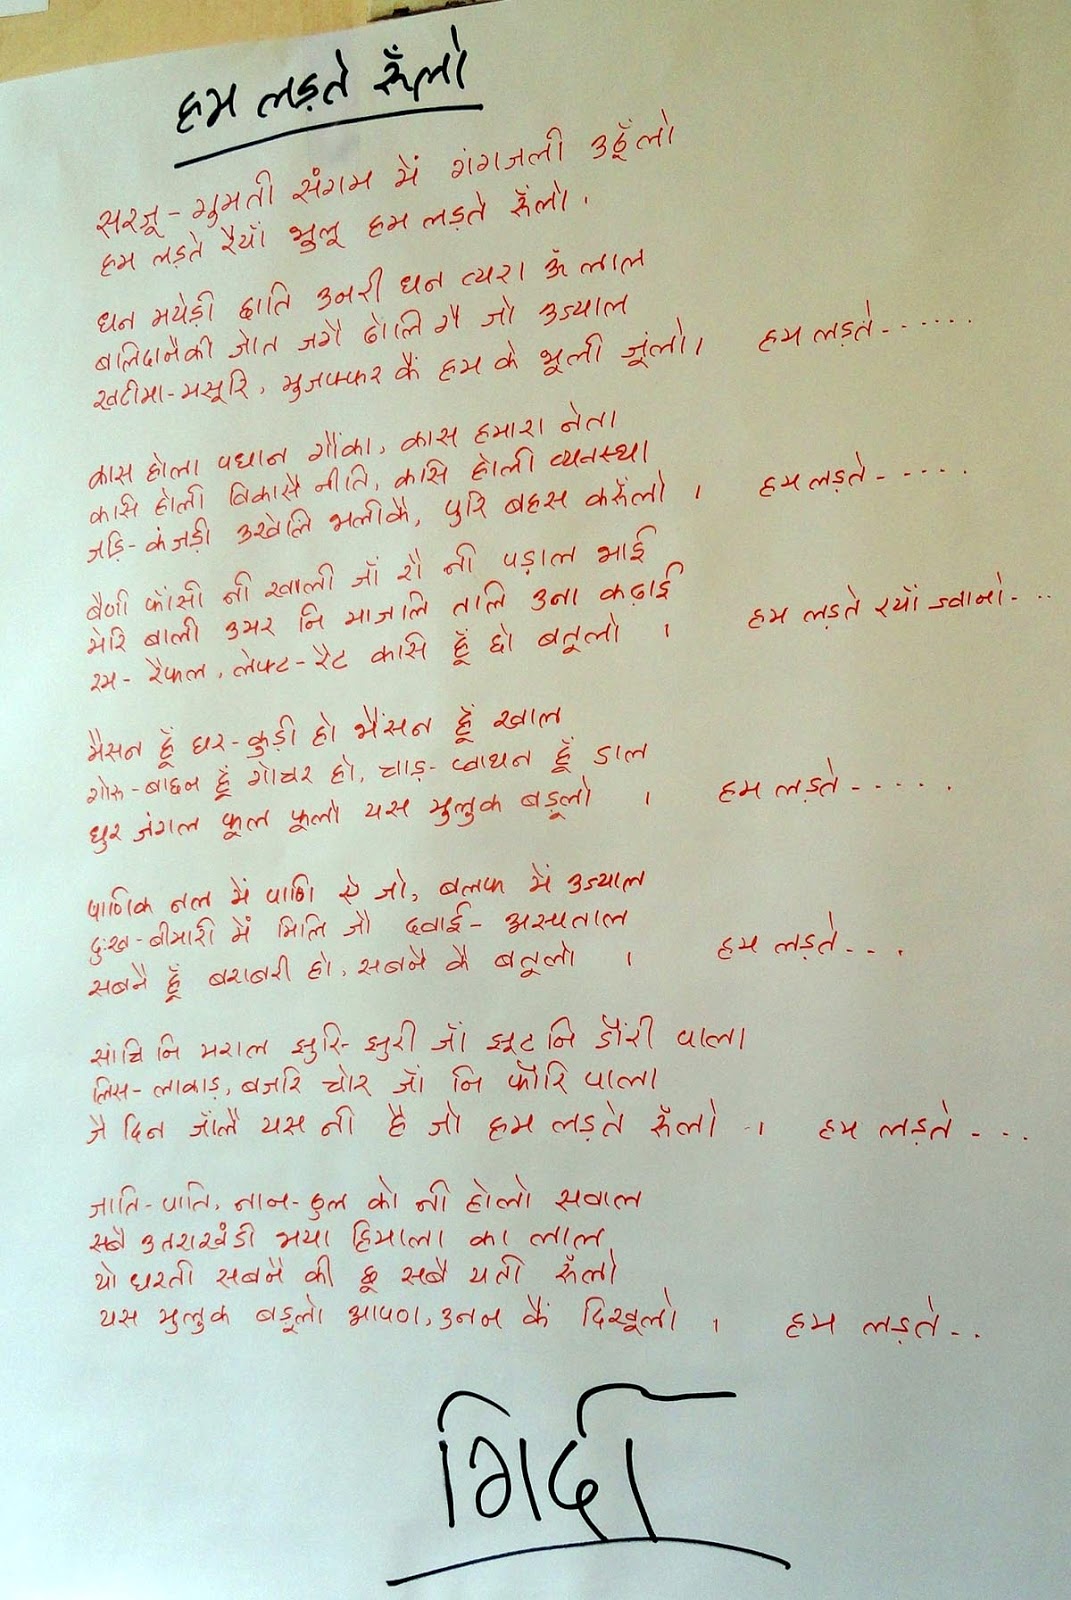 हम लड़ते रूँलो
सरजू - गुमती संगम में गंगजली उठूँलो
हम लड़ते रैयाँ भुलू हम लड़ते रूँलो ।
धन मयेड़ी छाति उनरी धन त्यरा ऊँ लाल
बलिदानैकी जोत जगै ढोलि गै जो उज्याल
खटीमा - मसूरि, मुजफ्फर कैं हम के भूली जूंलो । हम लड़ते - - - - - -
कास होला पधान गौंका, कास हमारा नेता
कासि होली विकासै नीति, कासि होली व्यवस्था
जड़ि - कंजड़ी उखेलि भलीकै, पुरि बहस करूँलो । हम लड़ते - - - - -
बैणी फाँसी नी खाली जाँ रौ नी पड़ाल भाई
मेरि बाली उमर नि माजालि तालि उना कढ़ाई
रम - रैफल, लेफ्ट - रैट कासि हूँ छो बतूलो । हम लड़ते रयाँ ज्वानो - - -
मैसन हूँ घर - कुड़ी हो भैंसन हूँ खाल
गोरु - बाछन हूँ गोचर हो, चाड़ - प्वाथन हूँ डाल
धुर जंगल फूल फूलो यस मुलुक बड़ूलो । हम लड़ते - - - - - -
पाणिक नल में पाणि ऐ जो, बलफ में उज्याल
दुःख - बीमारी में मिलि जौ दवाई - अस्पताल
सबनै हूँ बराबरी हो, सबनै कै बतूलो । हम लड़ते - - - .
सांचि नि मराल झुरि - झुरी जाँ झूट नि डौंरी पाला
लिस - लाकाड़, बजरि चोर जाँ नि फौरि पाला
जै दिन जाँलै यस नी है जो हम लड़ते रूँलो । हम लड़ते - - -
जाति - पाति, नान - ठुल को नी होलो सवाल
सबै उतराखंडी भया हिमाला का लाल
यो धरती सबनै की छू सबै यती रूँलो
यस मुलुक बड़ूलो आपण, उनन कैं दिखूलो । हम लड़ते - -
गिर्दा